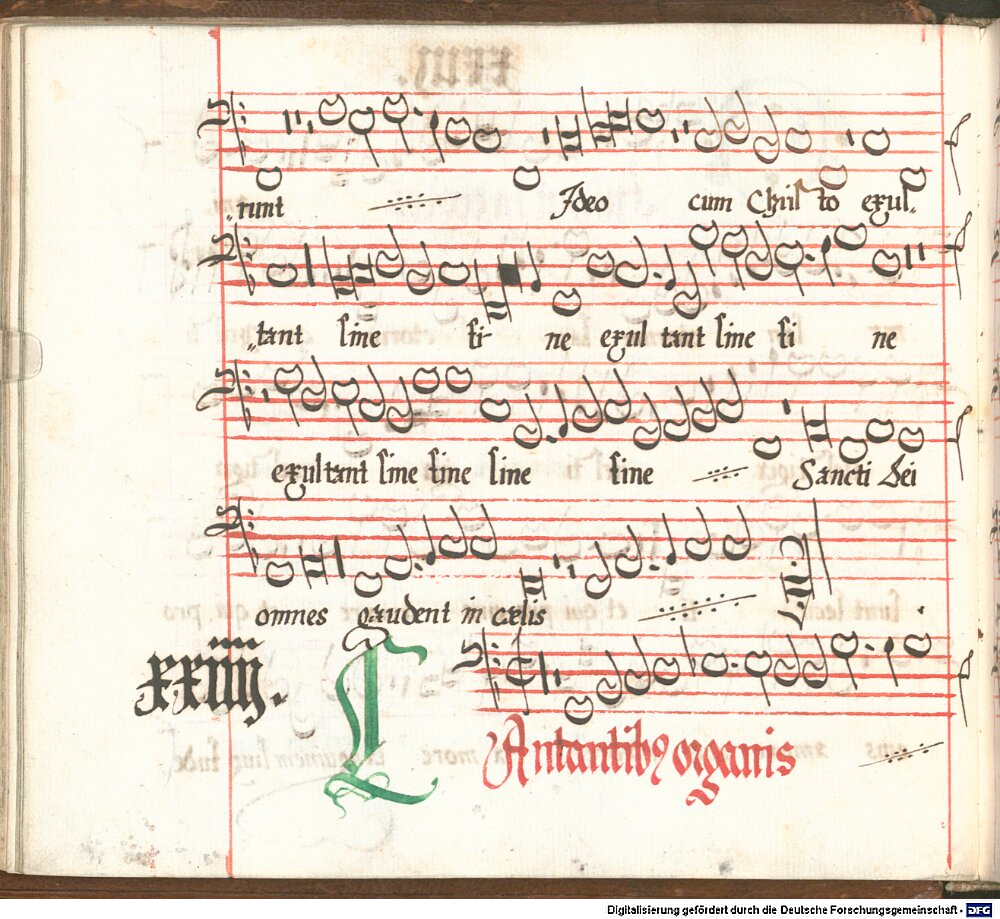 „runt Ideo cum Chriſto exul„
„tant ſine fi- ne exul tant ſine fi ne
exultant ſine fine ſine fine Sancti dei
omnes gaudent in cælis
xxiiij. C
Antantibꝫ organis
Digitalisierung gefördert durch die Deutsche Forschungsgemeinschaft - DFG